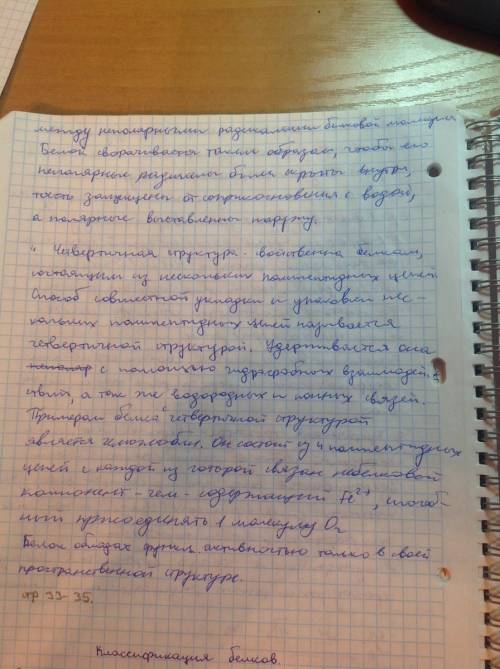 между неполярными радикалами белковой молекулы
Белок сворачивается таким образом, чтобы его
неполярные радикалы были скрыты внутри,
тость защищены от соприкосновения с водой,
а полярные выставлены наружу.
4. Четвертичная структура - свойственна белкам,
состоящим из нескольких полипептидных цепей.
Способ совместной укладки и упаковки нес-
кольких полипептидных цепей называется
четвертичной структурой. Удерживается она
с помощью гидрофобных взаимодей-
ствий, а так же водородных и ионных связей.
Примером белка с четвертичной структурой
является гемоглобин. Он состоит из 4 полипептидных
цепей с каждой из которой связан небелковой
компонент - гем - содержащий Fe2+, способ-
ный присоединять 1 молекулу O2
Белок обладах функц. активностью только в своей
пространственной структуре.
стр 33-35.
Классификация белков.